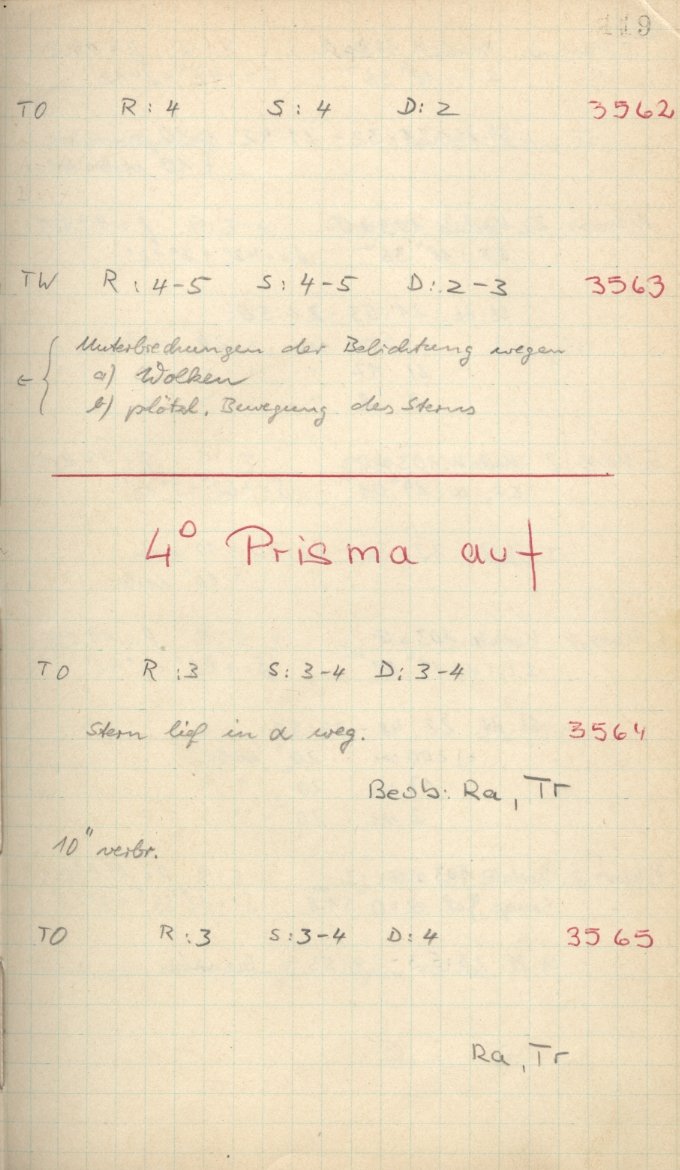 119
TO R: 4 S: 4 D: 2 3562
TW R: 4-5 S: 4-5 D: 2-3 3563
Unterbrechungen der Belichtung wegen
a) Wolken
b) plötzl. Bewegung des Sterns
4° Prisma auf
TO R: 3 S: 3-4 D: 3-4
Stern lief in α weg. 3564
Beob: Ra, Tr
10" verbr.
TO R: 3 S: 3-4 D: 4 3565
Ra, Tr